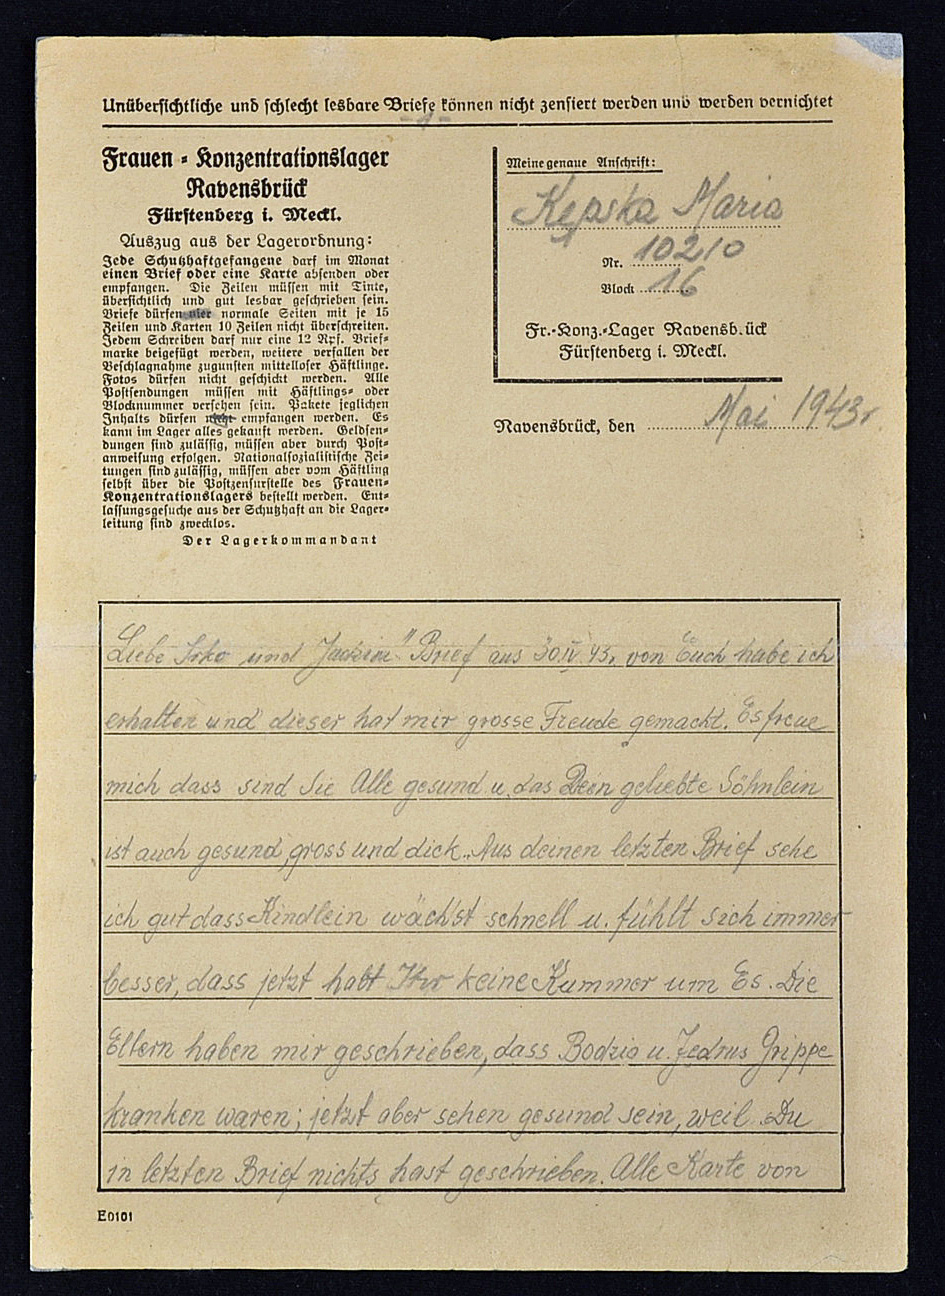 Unübersichtliche und schlecht lesbare Briefe können nicht zensiert werden und werden vernichtet
-1-
Frauen-Konzentrationslager
Ravensbrück
Fürstenberg i. Meckl.
Auszug aus der Lagerordnung:
Jede Schutzhaftgefangene darf im Monat
einen Brief oder eine Karte absenden oder
empfangen. Die Zeilen müssen mit Tinte,
übersichtlich und gut lesbar geschrieben sein.
Briefe dürfen vier normale Seiten mit je 15
Zeilen und Karten 10 Zeilen nicht überschreiten.
Jedem Schreiben darf nur eine 12 Rpf. Brief-
marke beigefügt werden, weitere verfallen der
Beschlagnahme zugunsten mittelloser Häftlinge.
Fotos dürfen nicht geschickt werden. Alle
Postsendungen müssen mit Häftlings- oder
Blocknummer versehen sein. Pakete jeglichen
Inhalts dürfen nicht empfangen werden. Es
kann im Lager alles gekauft werden. Geldsen-
dungen sind zulässig, müssen aber durch Post-
anweisung erfolgen. Nationalsozialistische Zei-
tungen sind zulässig, müssen aber vom Häftling
selbst über die Postzensurstelle des Frauen-
Konzentrationslagers bestellt werden. Ent-
lassungsgesuche aus der Schutzhaft an die Lager-
leitung sind zwecklos.
Der Lagerkommandant
Meine genaue Anschrift:
Kępska Maria
Nr. 10210
Block 16
Fr.-Konz.-Lager Ravensbrück
Fürstenberg i. Meckl.
Ravensbrück, den Mai 1943r
Liebe Irko und Brief aus 30 IV 43. von Euch habe ich
erhalten und dieser hat mir grosse Freude gemackt. Es freue
mich dass sind Sie Alle gesund u. das Dein geliebte Söhnlein
ist auch gesund, gross und dick. Aus deinen letzten Brief sehe
ich gut dass Kindlein wächst schnell u. fühlt sich immer
besser, dass jetzt habt Ihr keine Kummer um Es. Die
Eltern haben mir geschrieben, dass Bodzio u. Jędruś Grippe
kranken waren; jetzt aber sehen gesund sein, weil Du
in letzten Brief nichts hast geschrieben. Alle Karte von
E0101